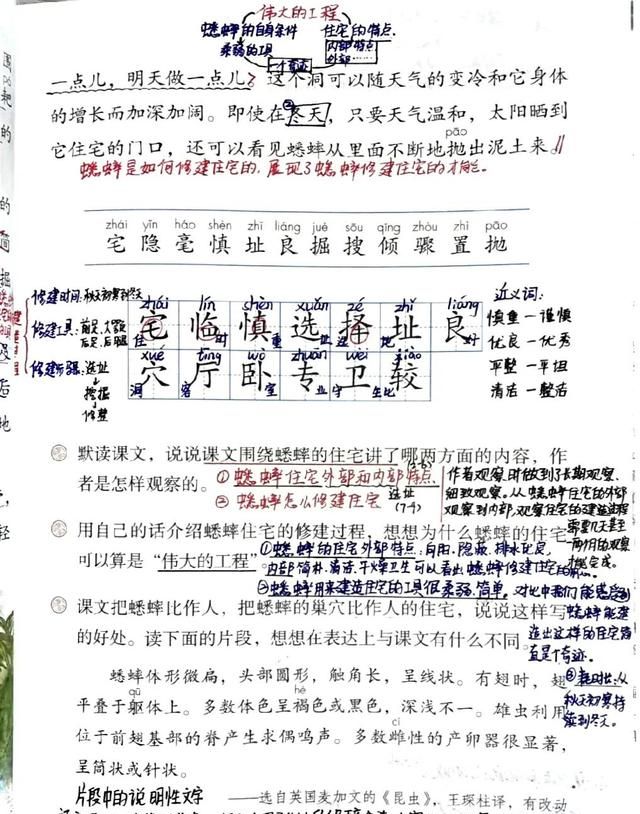 伟大的工程
蟋蟀的自身条件 住宅的特点
柔弱的工具 内部特点
外部
一个奇迹
一点儿，明天做一点儿。这个洞可以随天气的变冷和它身体
的增长而加深加阔。即使在冬天，只要天气温和，太阳晒到
pāo
它住宅的门口，还可以看见蟋蟀从里面不断地抛出泥土来。
蟋蟀是如何修建住宅的，展现了蟋蟀修建住宅的才能。
zhái yǐn háo shèn zhǐ liáng jué sōu qīng zhòu zhì pāo
宅 隐 毫 慎 址 良 掘 搜 倾 骤 置 抛
修建时间：秋天初寒到冬天
修建工具：前足、大颚
后足、后腿
选址
挖掘
修整
zhái lín shèn xuǎn zé zhǐ liáng
宅 临 慎 选 择 址 良
xué tīng wò zhuān wèi jiào
穴 厅 卧 专 卫 较
近义词：
慎重—谨慎
优良—优秀
平整—平坦
清洁—整洁
默读课文，说说课文围绕蟋蟀的住宅讲了哪两方面的内容，作
者是怎样观察的。
①蟋蟀住宅外部和内部特点
②蟋蟀怎么修建住宅
(7-9)
作者观察时做到了长期观察、
细致观察。从蟋蟀住宅的外部
观察到内部，观察住宅的建造过程
需要几天甚至
两个月的观察
才能完成。
用自己的话介绍蟋蟀住宅的修建过程，想想为什么蟋蟀的住宅
可以算是“伟大的工程”
①蟋蟀的住宅外部特点：向阳、隐蔽、排水优良，
内部简朴、清洁、干燥卫生可以看出蟋蟀修建住宅的
②蟋蟀用来建造住宅的工具很柔弱、简单。对比中我们能感受到
蟋蟀能建
造出这样的住宅简
直是个奇迹。
③耗时长：从
秋天初寒持
续到冬天。
课文把蟋蟀比作人，把蟋蟀的巢穴比作人的住宅，说说这样写
的好处。读下面的片段，想想在表达上与课文有什么不同。
蟋蟀体形微扁，头部圆形，触角长，呈线状。有翅时，翅
qū hè
平叠于躯体上。多数体色呈褐色或黑色，深浅不一。雄虫利用
cí
位于前翅基部的脊产生求偶鸣声。多数雌性的产卵器很显著，
呈筒状或针状。
片段中的说明性文字
——选自英国麦加文的《昆虫》，王琛柱译，有改动